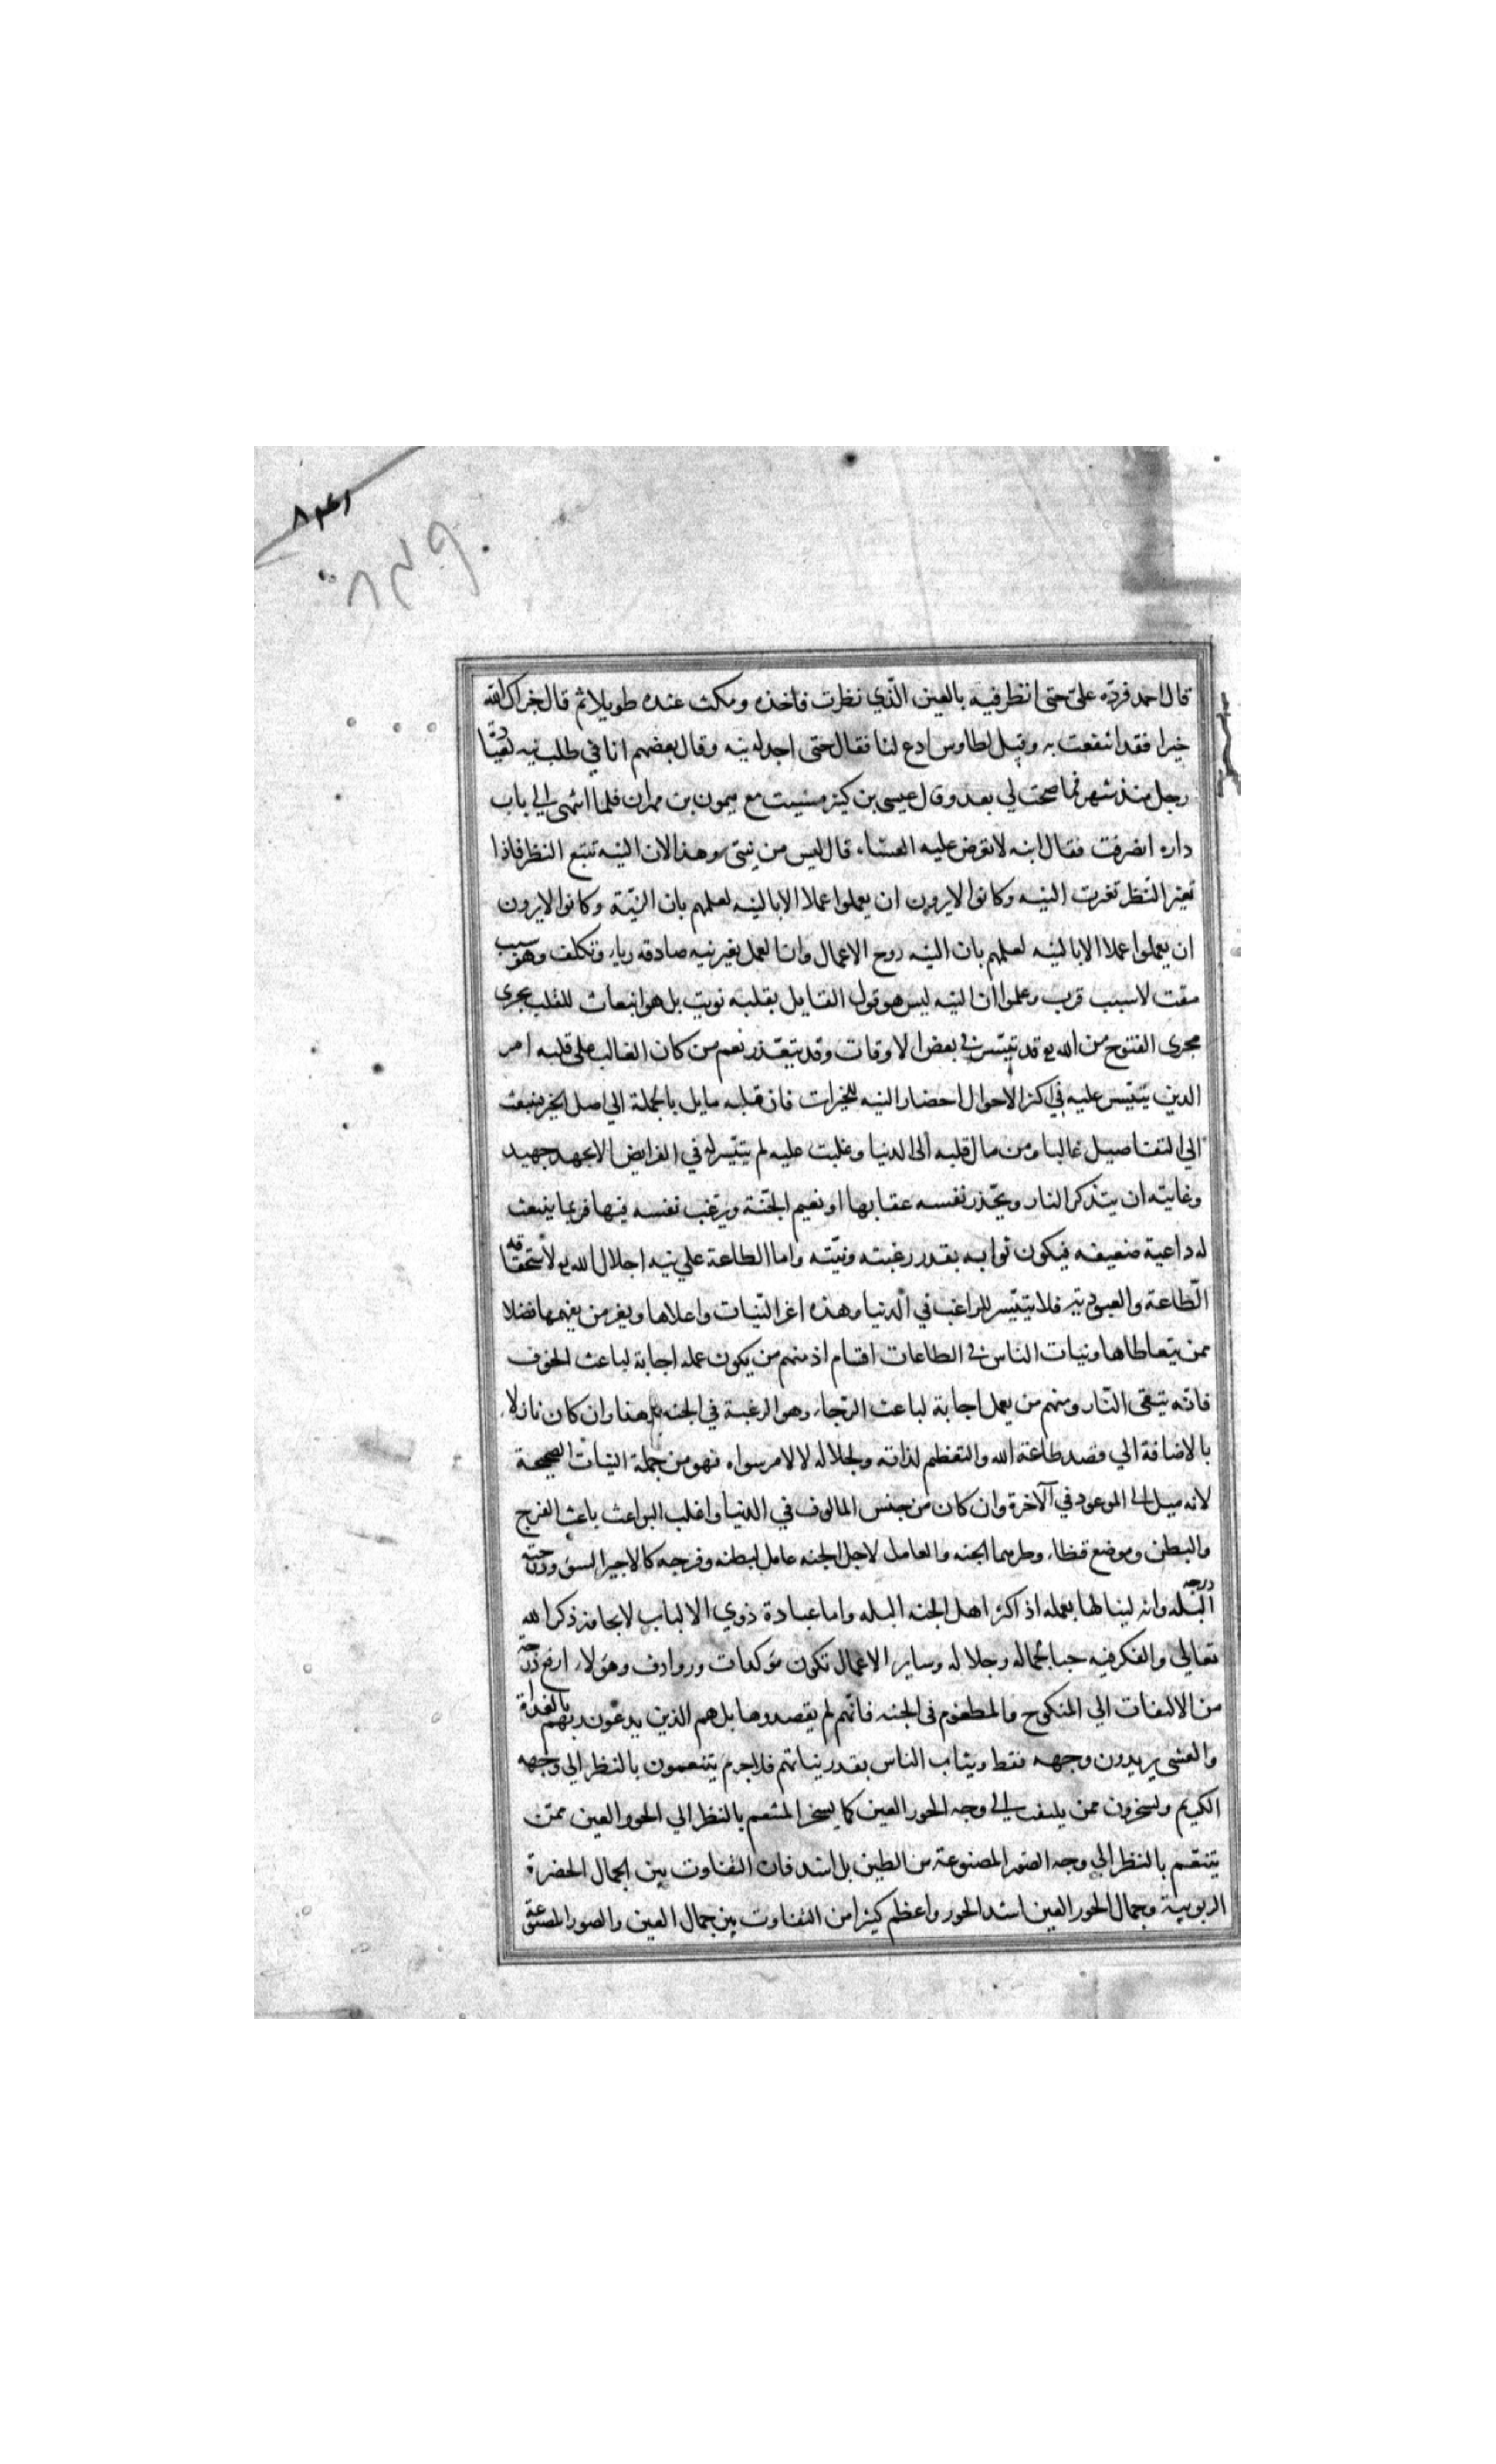 ٨٣١
٨٣٩
قال احمد فردّه عليّ حتى انظر فيه بالعين الّذي نظرت فاخذه ومكث عنده طويلا ثم قال جزاك الله
خيرا فقد انتفعت به وقيل لطاوس ادع لنا فقال حتى اجد له نيه وقال بعضهم انا في طلب نيه لعيادة
رجل منذ شهر فما صحت لي بعد وقال عيسى بن كثير مشيت مع ميمون بن مهران فلما انتهى الى باب
داره انصرفت فقال ابنه لا تعرض عليه العشاء قال ليس من نيتي وهذا لان النيه تتبع النظر فاذا
تغير النّظر تغيرت النيه وكانوا لا يرون ان يعملوا عملا الا بالنيه لعلمهم بان النيّة وكانوا لا يرون
ان يعملوا عملا الا بالنيه لعلمهم بان النيه روح الاعمال وان العمل بغير نيه صادقه رياء وتكلف وهو سبب
مقت لا سبب قرب وعلموا ان النيه ليس هو قول القايل بقلبه نويت بل هو انبعاث للقلب يجرى
مجرى الفتوح من الله تع قد تتيسر في بعض الاوقات وقد تتعذر نعم من كان الغالب على قلبه امر
الدين يتيسر عليه في اكثر الاحوال احضار النيه للخيرات فان قلبه مايل بالجملة الي اصل الخير فينبعث
الي التفاصيل غالبا ومن مال قلبه الى الدنيا وغلبت عليه لم يتيسر له في الفرايض الا بجهد جهيد
وغايته ان يتذكر النار ويحّذر نفسه عقابها او نعيم الجنّة ويرغب نفسه فيها فربما ينبعث
له داعية ضعيفه فيكون ثوابه بقدر رغبته ونيّته واما الطاعة علي نيه اجلال الله تع لاستحقاقه
الطّاعة والعبودية فلا تتيسر للراغب في الّدنيا وهذه اعز النّيات واعلاها ويعز من يفهمها فضلا
ممن يتعاطاها ونيات الناس في الطاعات اقسام اذ منهم من يكون عمله اجابة لباعث الخوف
فانّه يتقى النّار ومنهم من يعمل اجابة لباعث الرّجاء وهو الرغبة في الجنه وهذا وان كان نازلا
بالاضافة الي قصد طاعة الله والتعظيم لذاته ولجلاله لا لامر سواه فهو من جملة النيات الصحيحة
لانه ميل الى الموعود في الآخرة وان كان من جنس المالوف في الدنيا واغلب البواعث باعث الفرج
والبطن وموضع قضاء وطرهما الجنه والعامل لاجل الجنه عامل لبطنه وفرجه كالاجير السوء ودرجته
درجه البله وانه لينالها بعمله اذ اكثر اهل الجنه البله واما عبادة ذوي الالباب لا تجاوز ذكر الله
تعالي والفكر فيه حبا لجماله وجلاله وساير الاعمال تكون موكدات وروادف وهولاء ارفع درجة
من الالتفات الي المنكوح والمطعوم في الجنه فانّهم لم يقصدوها بل هم الذين يدعون ربهم بالغداة
والعشى يريدون وجهه فقط ويثاب الناس بقدر نياتهم فلا جرم يتنعمون بالنظر الي وجهه
الكريم ويسخرون ممن يلتفت الى وجه الحور العين كما يسخر المتنعم بالنظر الي الحور العين ممّن
يتنعّم بالنظر الي وجه الصور المصنوعة من الطين بل اشد فان التفاوت بين الجمال الحضرة
الربوبية وجمال الحور العين اشد الحور واعظم كثيرا من التفاوت بين جمال العين والصور المصنوعة